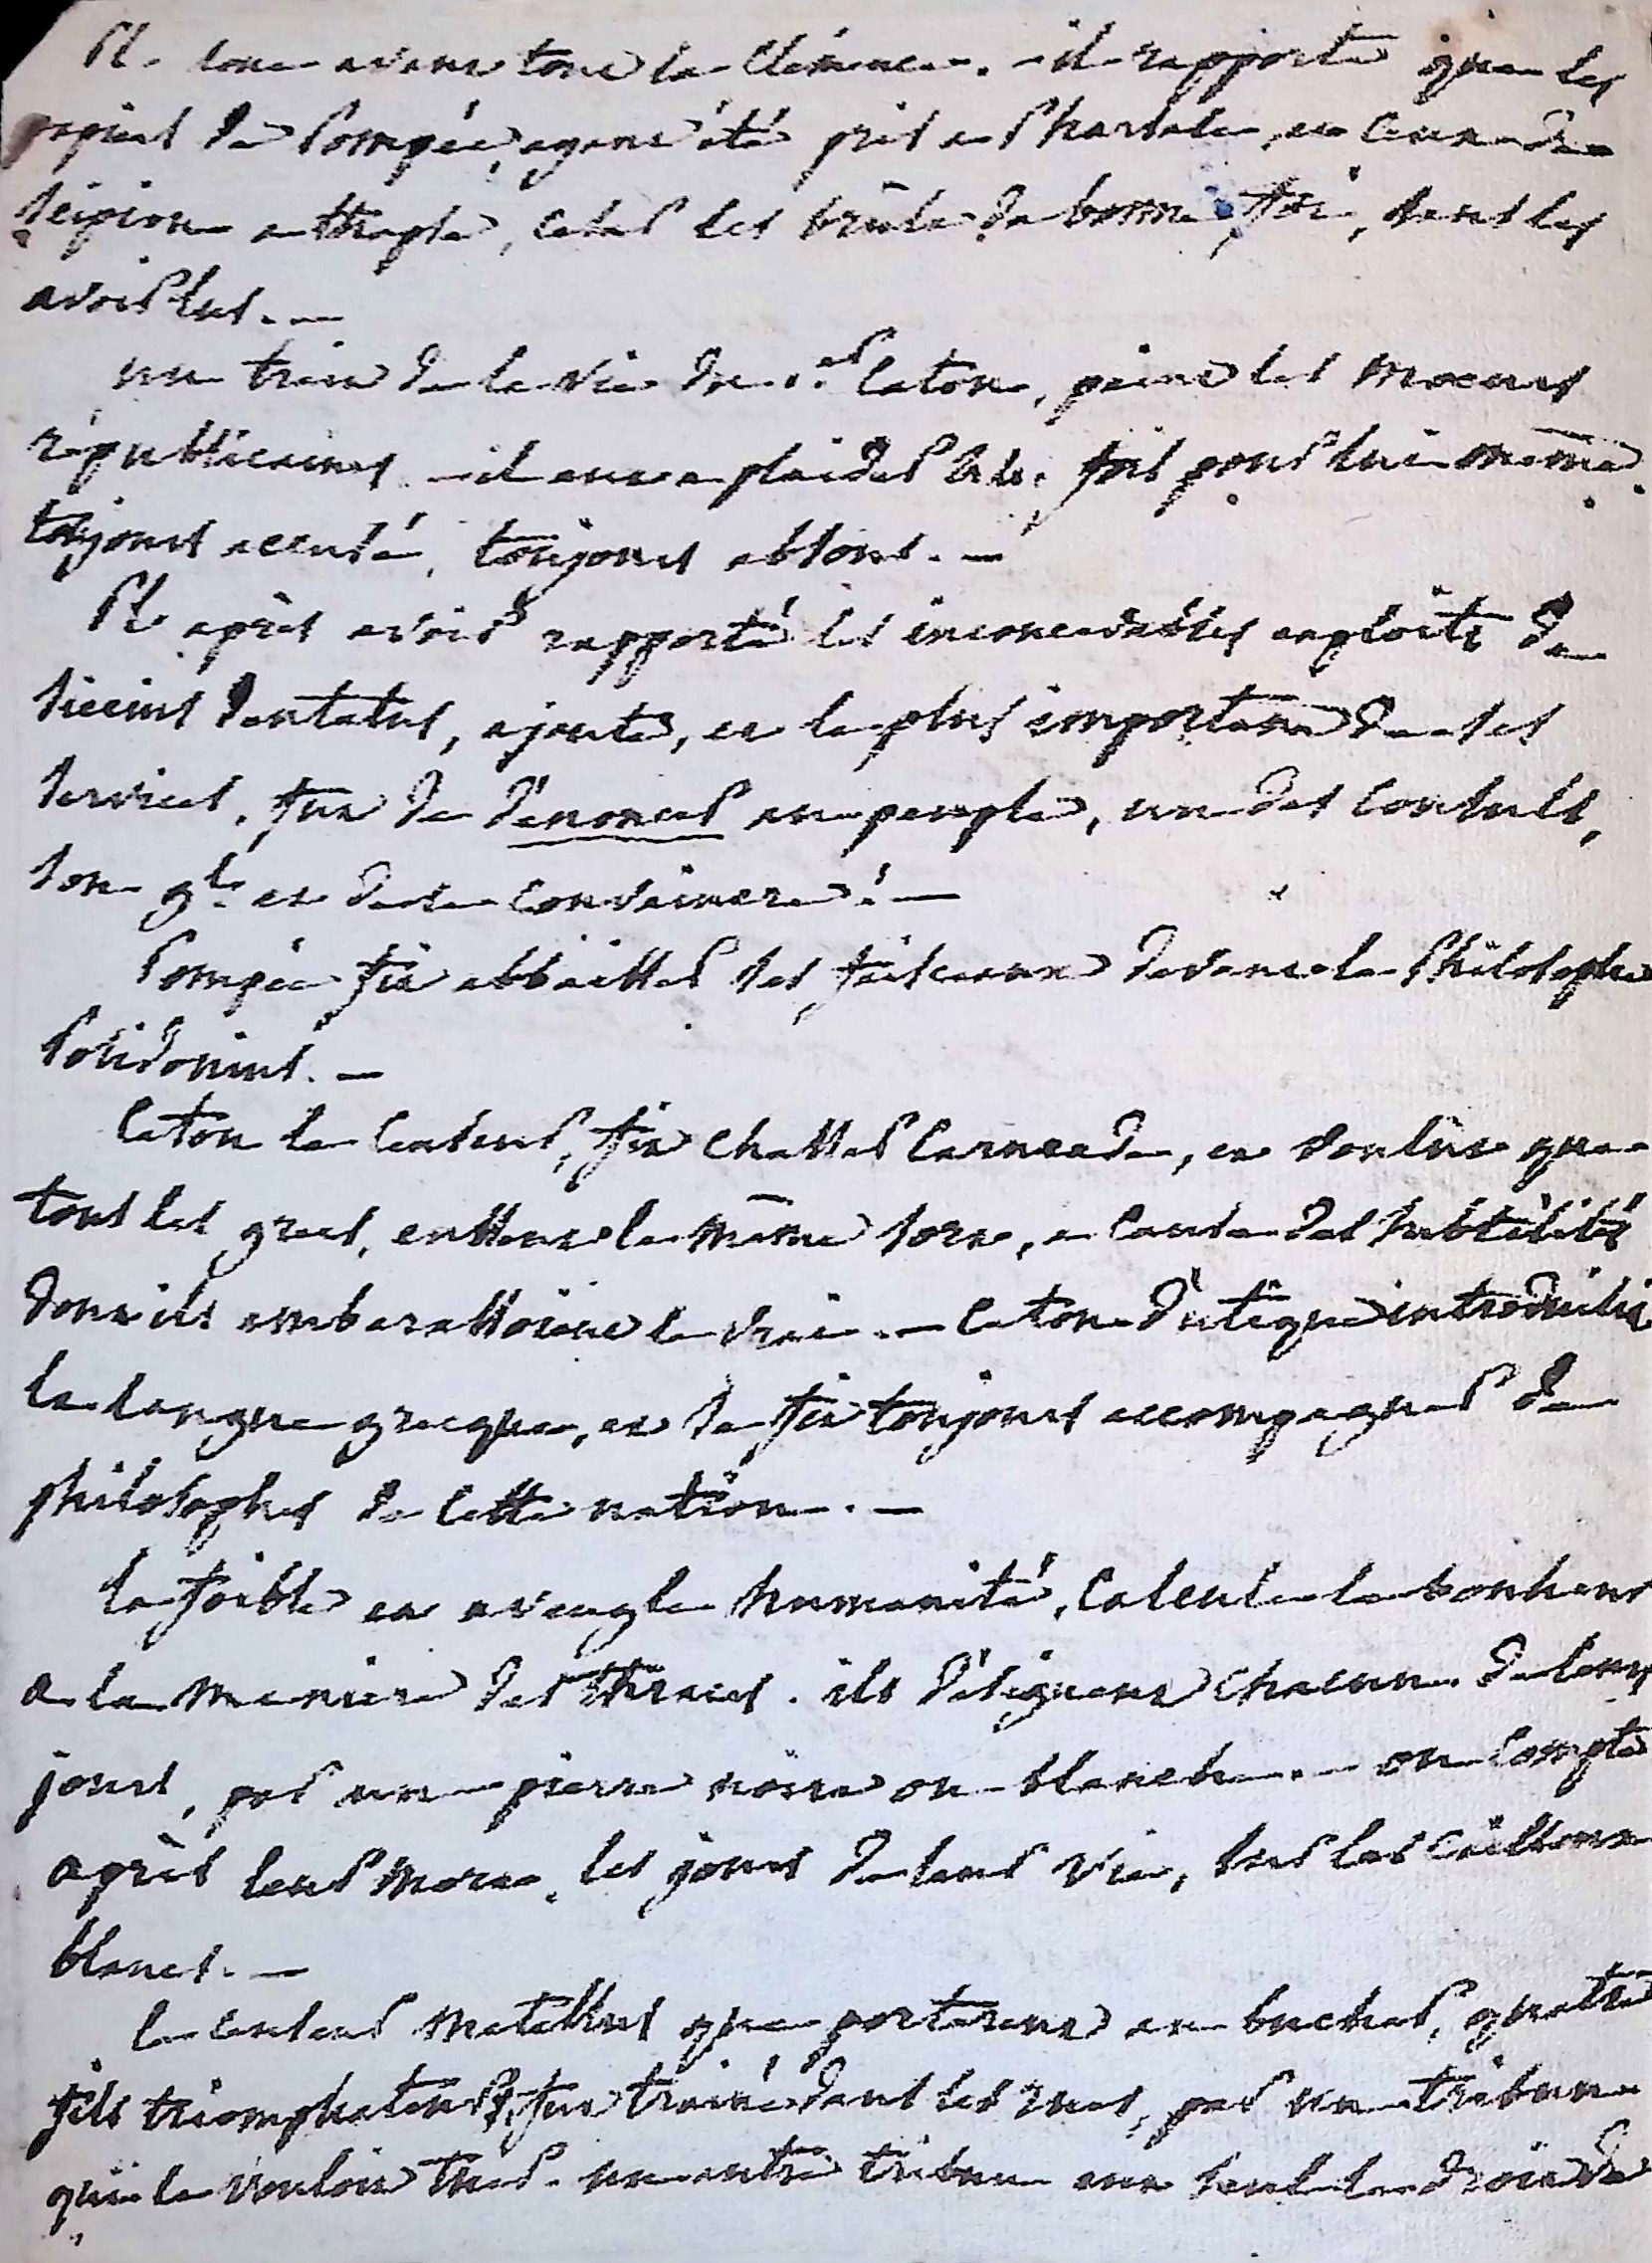 Pl. loue avant tout la Clémence. - il rapporte que les
papiers de Pompée, ayant été pris a Pharsale, et ceux de
Scipion a thapse, Cesar les brula de bonne foi, sans les
avoir lus. —
un trait de la vie du 1er Caton, peint les moeurs
républicaines. - il eut a plaider fois pour lui même.
toujours accusé, toujours absous. —
Pl. après avoir rapporté les inconcevables exploits de
Siccius Dentatus, ajoute, et le plus important de ses
services, fut de dénoncer au peuple, un des Consuls,
son gl. et de le convaincre! —
Pompée fit abbaisser ses faisceaux devant le Philosophe
Posidonius. —
Caton le Censeur, fit chasser Carneade, et voulut que
tous les grecs, eussent le même sort, a cause des subtilités
dont ils embarassoient le vrai. — Caton d'utique introduisit
la langue grecque, et se fit toujours accompagner de
philosophes de cette nation. —
la foible et aveugle humanité, Calcule le bonheur
a la maniere des thraces. ils désignent chacun de leurs
jours, par une pierre noire ou blanche. — on compte
après leur mort, les jours de leur vie, sur les cailloux
blancs. —
le censeur Metellus que porterent au bucher, quatre
fils triomphateurs, fut trainé dans les rues, par un tribun
qui le vouloit tuer. un autre tribun eut seul le droit de